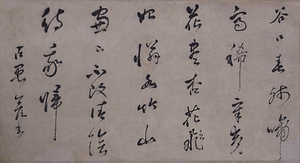 谷口春殘
鳥稀辛夷
花盡杏花飛
始憐幽竹山
窗下不改清陰
待我歸